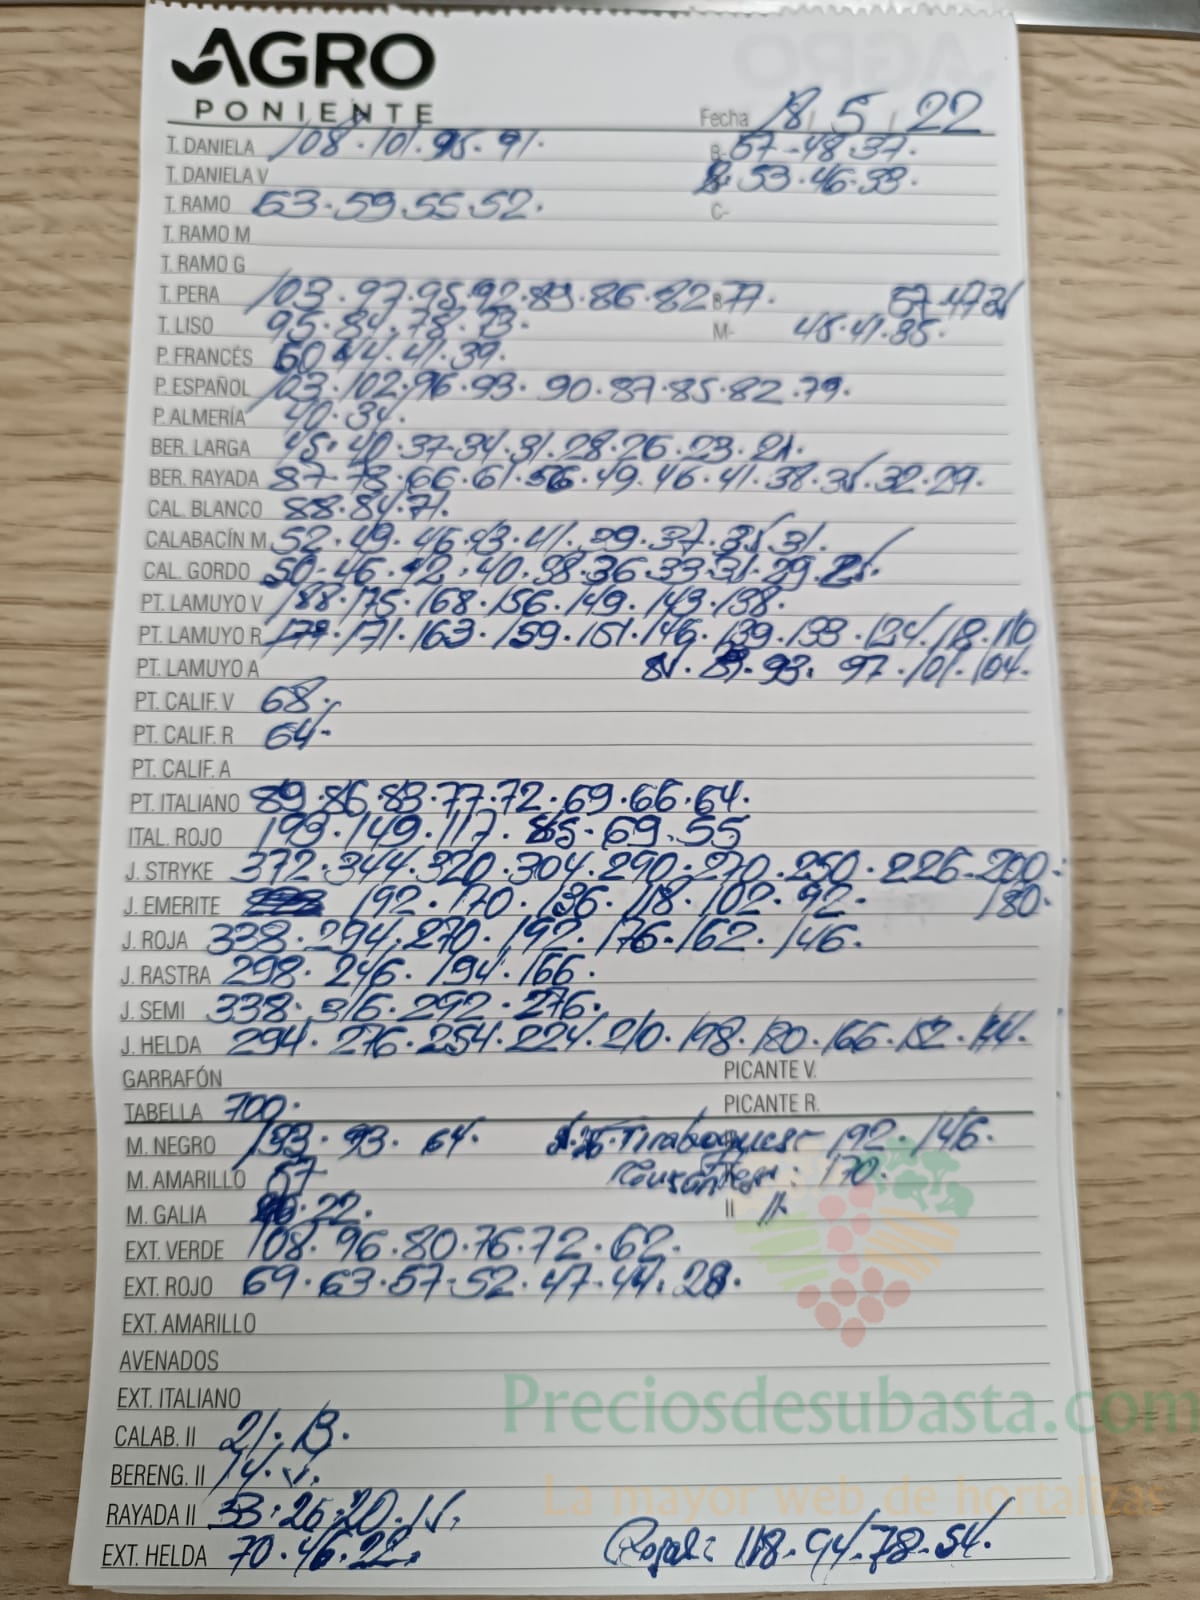 AGRO
PONIENTE
Fecha 18 5 22
T. DANIELA 108. 101. 95. 91. B- 57-48.37.
T. DANIELA V 53.46.33.
T. RAMO 63.59.55.52. C-
T. RAMO M
T. RAMO G
T. PERA 103.97.95.92.89.86.82.77.
T. LISO 95.84.78.73. M- 45.41.35.
P. FRANCÉS 60.44.41.39.
P. ESPAÑOL 103.102.96.93. 90.87.85.82.79.
P. ALMERÍA 40.34.
BER. LARGA 45.40.37-34.31.28.26.23.21.
BER. RAYADA 87-78.66.61.56.49.46.41.38.35.32.29.
CAL. BLANCO 88.84.71.
CALABACÍN M 52.49.46.43.41.39.37.35.31.
CAL. GORDO 50.46.42.40.38.36.33.31.29.25.
PT. LAMUYO V 188.175.168.156.149.143.138.
PT. LAMUYO R 179.171.163.159.151.146.139.133.124.118.110
PT. LAMUYO A 93. 97.101.104.
PT. CALIF. V 68.
PT. CALIF. R 64.
PT. CALIF. A
PT. ITALIANO 89.86.83.77.72.69.66.64.
ITAL. ROJO 193.149.117.85-69.55
J. STRYKE 372.344.320.304.290.270.250.226-200.
J. EMERITE 192.170.136.118.102.92. 180.
J. ROJA 338.294.270.192.176.162.146.
J. RASTRA 298.246.194.166.
J. SEMI 338.316.292.276.
J. HELDA 294.276.254.224.210.198.180.166.152.144.
GARRAFÓN PICANTE V.
TABELLA 700. PICANTE R.
M. NEGRO 193.93.64. Tirabeques: 192.146.
M. AMARILLO 57 170.
M. GALIA 22. II
EXT. VERDE 108.96.80.76.72.62.
EXT. ROJO 69.63.57-52.47-44.28.
EXT. AMARILLO
AVENADOS
EXT. ITALIANO
CALAB. II 21.13.
BERENG. II 14.
RAYADA II 33.26.20.15.
EXT. HELDA 70.46.22. 118.94.78.54.
Preciosdesubasta.com
La mayor web de hortalizas